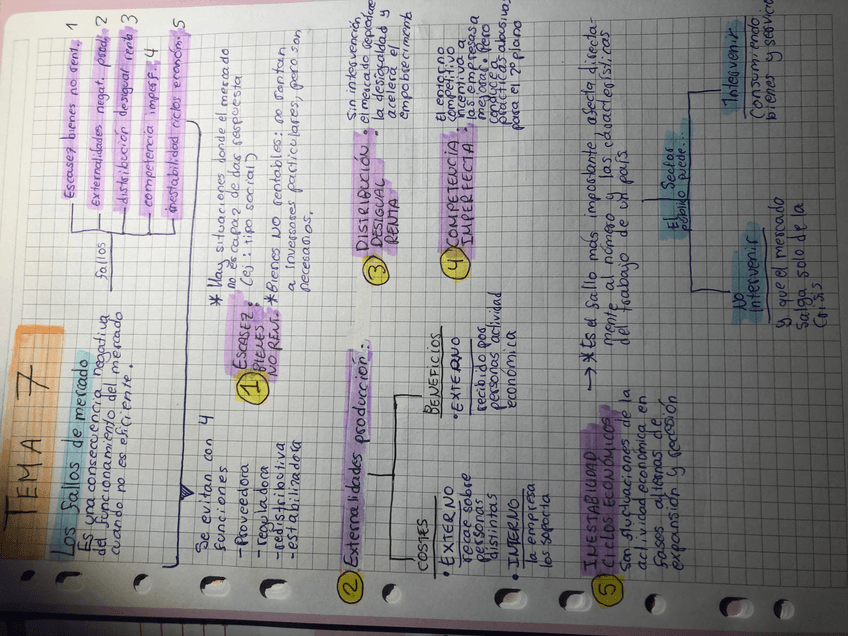 TEMA 7
Los fallos de mercado
Es una consecuencia negativa
del funcionamiento del mercado
cuando no es eficiente.
fallos
Escasez bienes no rent. 1
externalidades negat. prod. 2
distribución desigual renta 3
competencia imperf. 4
inestabilidad ciclos económ. 5
Se evitan con 4
funciones
-Proveedora
-reguladora
-redistributiva
-estabilizadora
1 ESCASEZ
BIENES
NO RENT.
* Hay situaciones donde el mercado
no es capaz de dar respuesta
(ej: tipo social)
* Bienes NO rentables: no rentan
a inversores particulares, pero son
necesarios.
2 Externalidades producción:
COSTES
• EXTERNO
recae sobre
personas
distintas
• INTERNO
la empresa
los soporta
BENEFICIOS
• EXTERNO
recibido por
personas actividad
económica
3 DISTRIBUCIÓN
DESIGUAL
RENTA
Sin intervención,
el mercado reproduce
la desigualdad y
acelera el
empobrecimiento
4 COMPETENCIA
IMPERFECTA:
El entorno
competitivo
incentiva a
las empresas a
mejorar, pero
conduce a
prácticas abusivas
para el 2º plano
5 INESTABILIDAD
CICLOS ECONÓMICOS
Son fluctuaciones de la
actividad económica en
fases alternas de
expansión y recesión
→ * Es el fallo más importante afecta directa-
mente al número y las características
del trabajo de un país
El Sector
público puede...
No
intervenir
y que el mercado
salga solo de la
crisis
Intervenir
Consumiendo
bienes y servicio